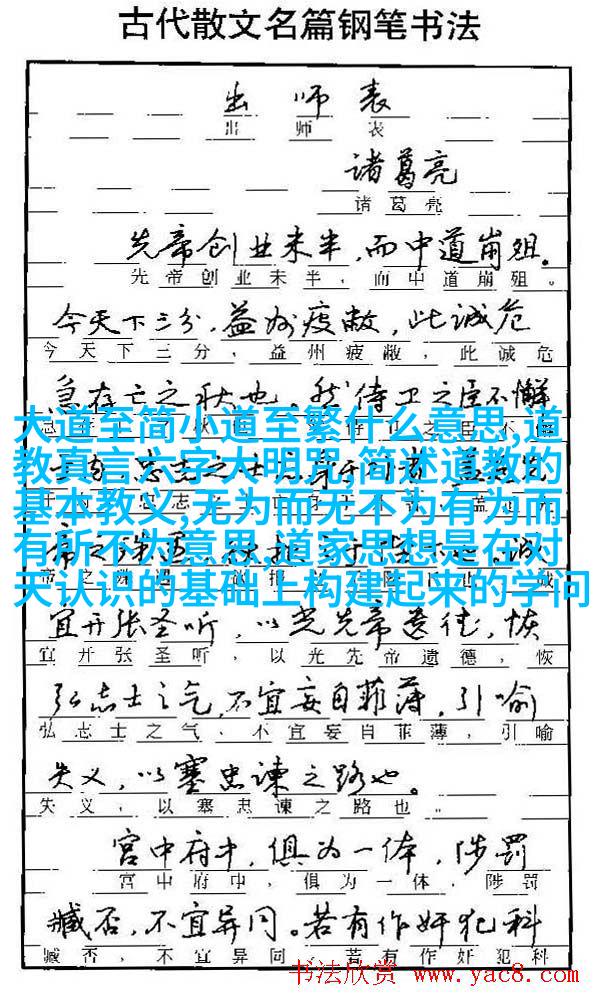 古代散文名篇钢笔书法
出师表
出师表
诸葛亮
诸葛亮
先帝创业未半,而中道崩殂。
先帝创业未半,而中道崩殂。
今天下三分,益州疲敝,此诚危
今天下三分,益州疲敝,此诚危
急存亡之秋也。然侍卫之臣不懈
大道至简小道至繁什么意思,道
教真言六字大明咒,简述道教的
基本教义,无为而无不为有为而
有所不为意思,道家思想是在对
天认识的基础上构建起来的学问
宜开张圣听,以光先帝遗德,恢
宜开张圣听,以光先帝遗德,恢
弘志士之气,不宜妄自菲薄,引喻
弘志士之气,不宜妄自菲薄,引喻
失义,以塞忠谏之路也。
失义,以塞忠谏之路也。
宫中府中,俱为一体,陟罚
宫中府中,俱为一体,陟罚
臧否,不宜异同。若有作奸犯科
臧否,不宜异同。若有作奸犯科
书法欣赏 www.yac8.com